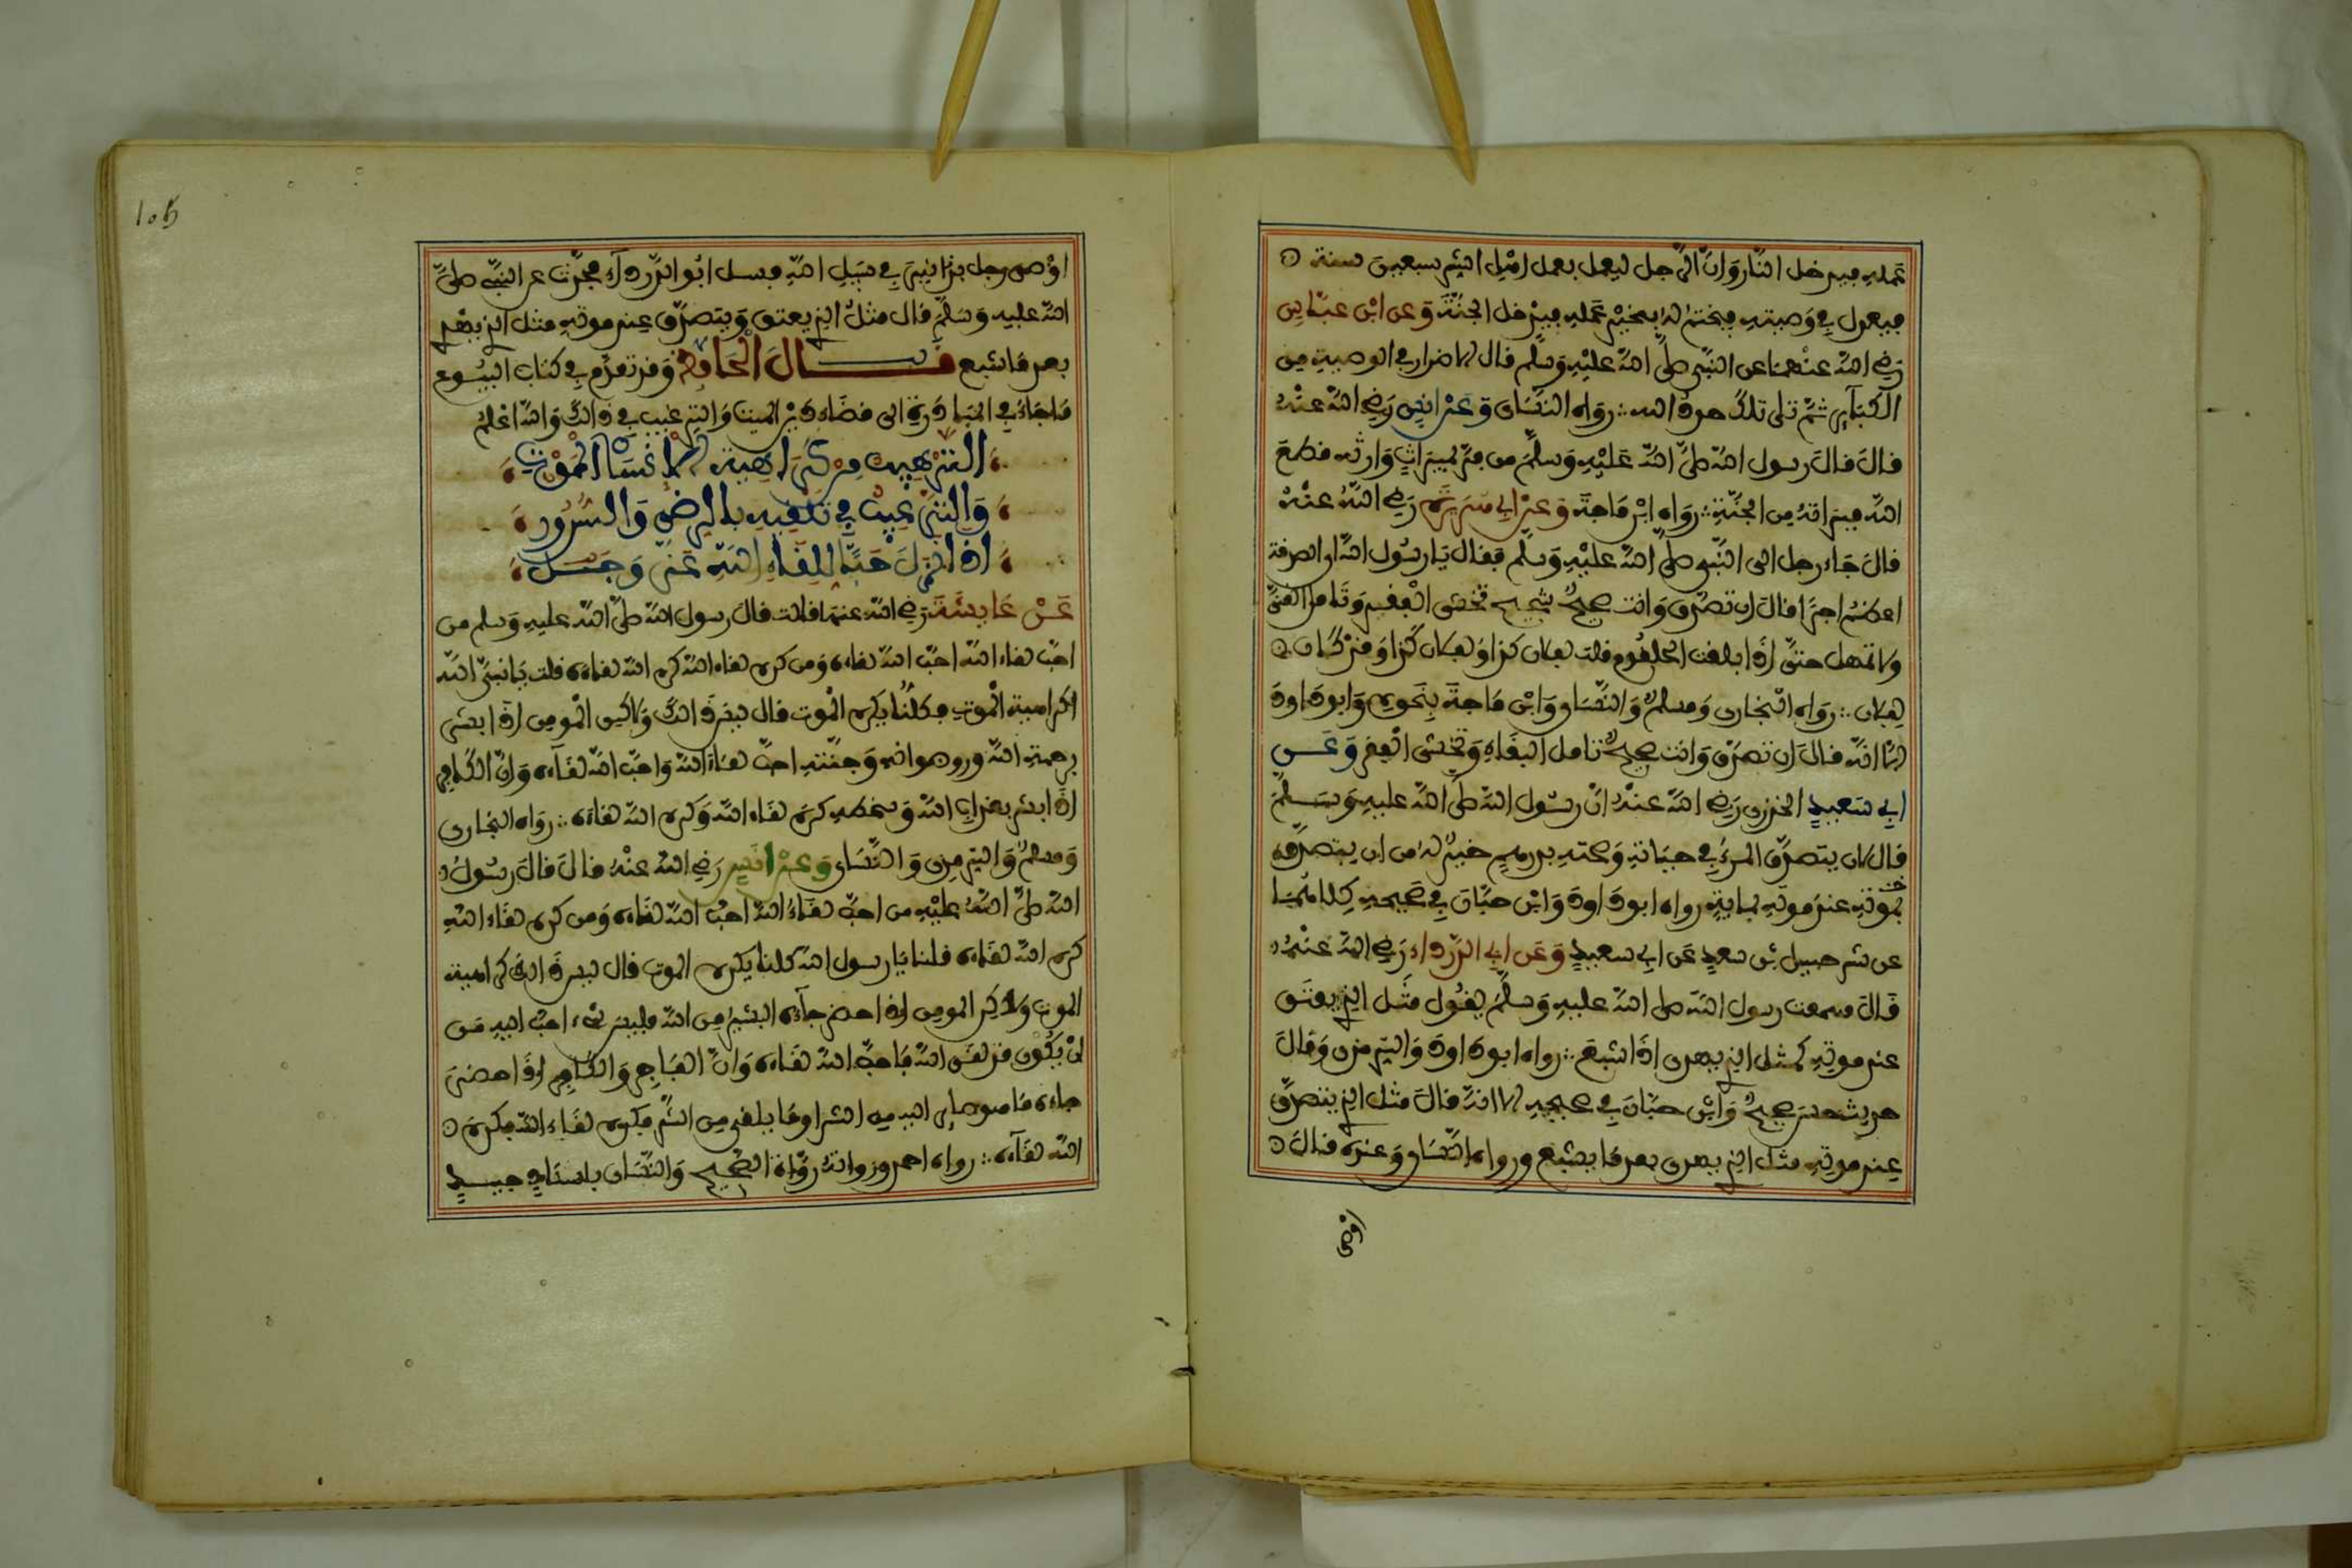 عمله فيدخل النار وان الرجل ليعمل بعمل اهل الشر سبعين سنة
فيعدل في وصيته فيختم له بخير عمله فيدخل الجنة وعن ابن عباس
رضي الله عنهما عن النبي صلى الله عليه وسلم قال الاضرار في الوصية من
الكبآير ثم تلى تلك حدود الله رواه النساى وعن انس رضي الله عنه
قال قال رسول الله صلى الله عليه وسلم من فر بميراث وارثه قطع
الله ميراثه من الجنة رواه ابن ماجة وعن ابي هريرة رضي الله عنه
قال جاء رجل الى النبي صلى الله عليه وسلم فقال يا رسول الله اي الصدقة
اعظم اجرا قال ان تصدق وانت صحيح شحيح تخشى الفقر وتامل الغنى
ولا تمهل حتى اذا بلغت الحلقوم قلت لفلان كذا ولفلان كذا وقد كان
لفلان رواه البخارى ومسلم والنساى وابن ماجة بنحوه وابو داود
الا انه قال ان تصدق وانت صحيح تامل البقاء وتخشى الفقر وعن
ابي سعيد الخدرى رضي الله عنه ان رسول الله صلى الله عليه وسلم
قال لان يتصدق المرء في حياته وصحته بدرهم خير له من ان يتصدق
عند موته بماية رواه ابو داود وابن حبان في صحيحه كلاهما
عن شرحبيل بن سعد عن ابي سعيد وعن ابي الدرداء رضي الله عنه
قال سمعت رسول الله صلى الله عليه وسلم يقول مثل الذي يعتق
عند موته كمثل الذي يهدى اذا شبع رواه ابو داود والترمذى وقال
حديث حسن صحيح وابن حبان في صحيحه الا انه قال مثل الذي يتصدق
عند موته مثل الذي يهدى بعد ما يشبع ورواه النساى وعنده قال
اوصى
105
اوصى رجل بدنانير في سبيل الله فسئل ابو الدرداء فحدث عن النبي صلى
الله عليه وسلم قال مثل الذي يعتق ويتصدق عند موته مثل الذي يهدي
بعد ما شبع قال الحافظ وقد تقدم في كتاب البيوع
ما جاء في المبادرة الى قضاء دين الميت والترغيب في ذالك والله اعلم
الترهيب من كراهية الانسان الموت
والترغيب في تلقيه بالرضى والسرور
اذا نزل حبا للقاء الله عز وجل
عن عايشة رضي الله عنها قالت قال رسول الله صلى الله عليه وسلم من
احب لقاء الله احب الله لقاءه ومن كره لقاء الله كره الله لقاءه قلت يا نبي الله
اكراهية الموت فكلنا يكره الموت قال ليس ذالك ولاكن المومن اذا بشر
برحمة الله ورضوانه وجنته احب لقاء الله واحب الله لقآءه وان الكافر
اذا بشر بعذاب الله وسخطه كره لقاء الله وكره الله لقاءه رواه البخارى
ومسلم والترمذى والنساى وعن انس رضي الله عنه قال قال رسول
الله صلى الله عليه من احب لقاء الله احب الله لقاءه ومن كره لقاء الله
كره الله لقاءه قلنا يا رسول الله كلنا يكره الموت قال ليس ذالك كراهية
الموت ولاكن المومن اذا احضر جآءه البشير من الله فليس شيء احب اليه من
ان يكون قد لقي الله فاحب الله لقاءه وان الفاجر والكافر اذا احضر
جاءه ما هو صاير اليه من الشر او ما يلقى من الشر فكره لقاء الله فكره
الله لقآءه رواه احمد ورواته رواة الصحيح والنساى باسناد جيد